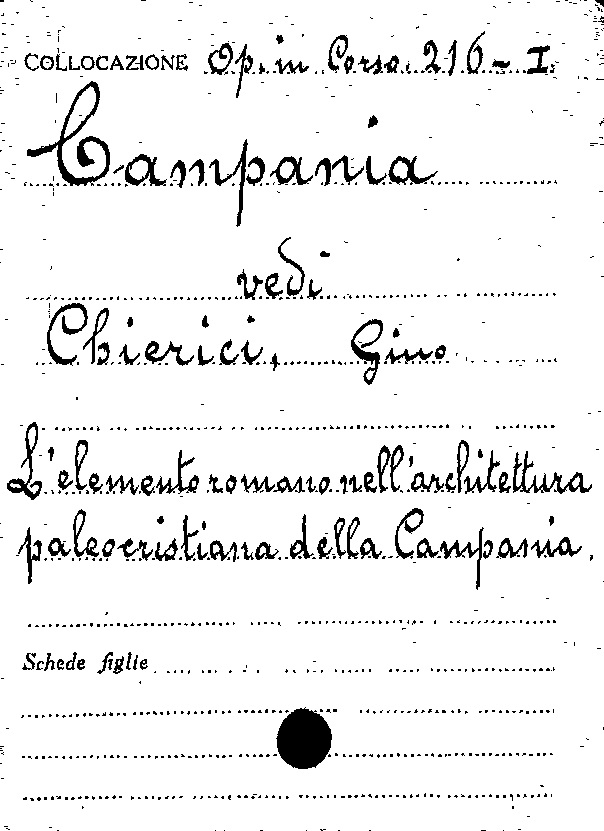 COLLOCAZIONE Op. in Corso. 216 - I.
Campania
vedi
Chierici, Gino
L'elemento romano nell'architettura
paleocristiana della Campania.
Schede figlie